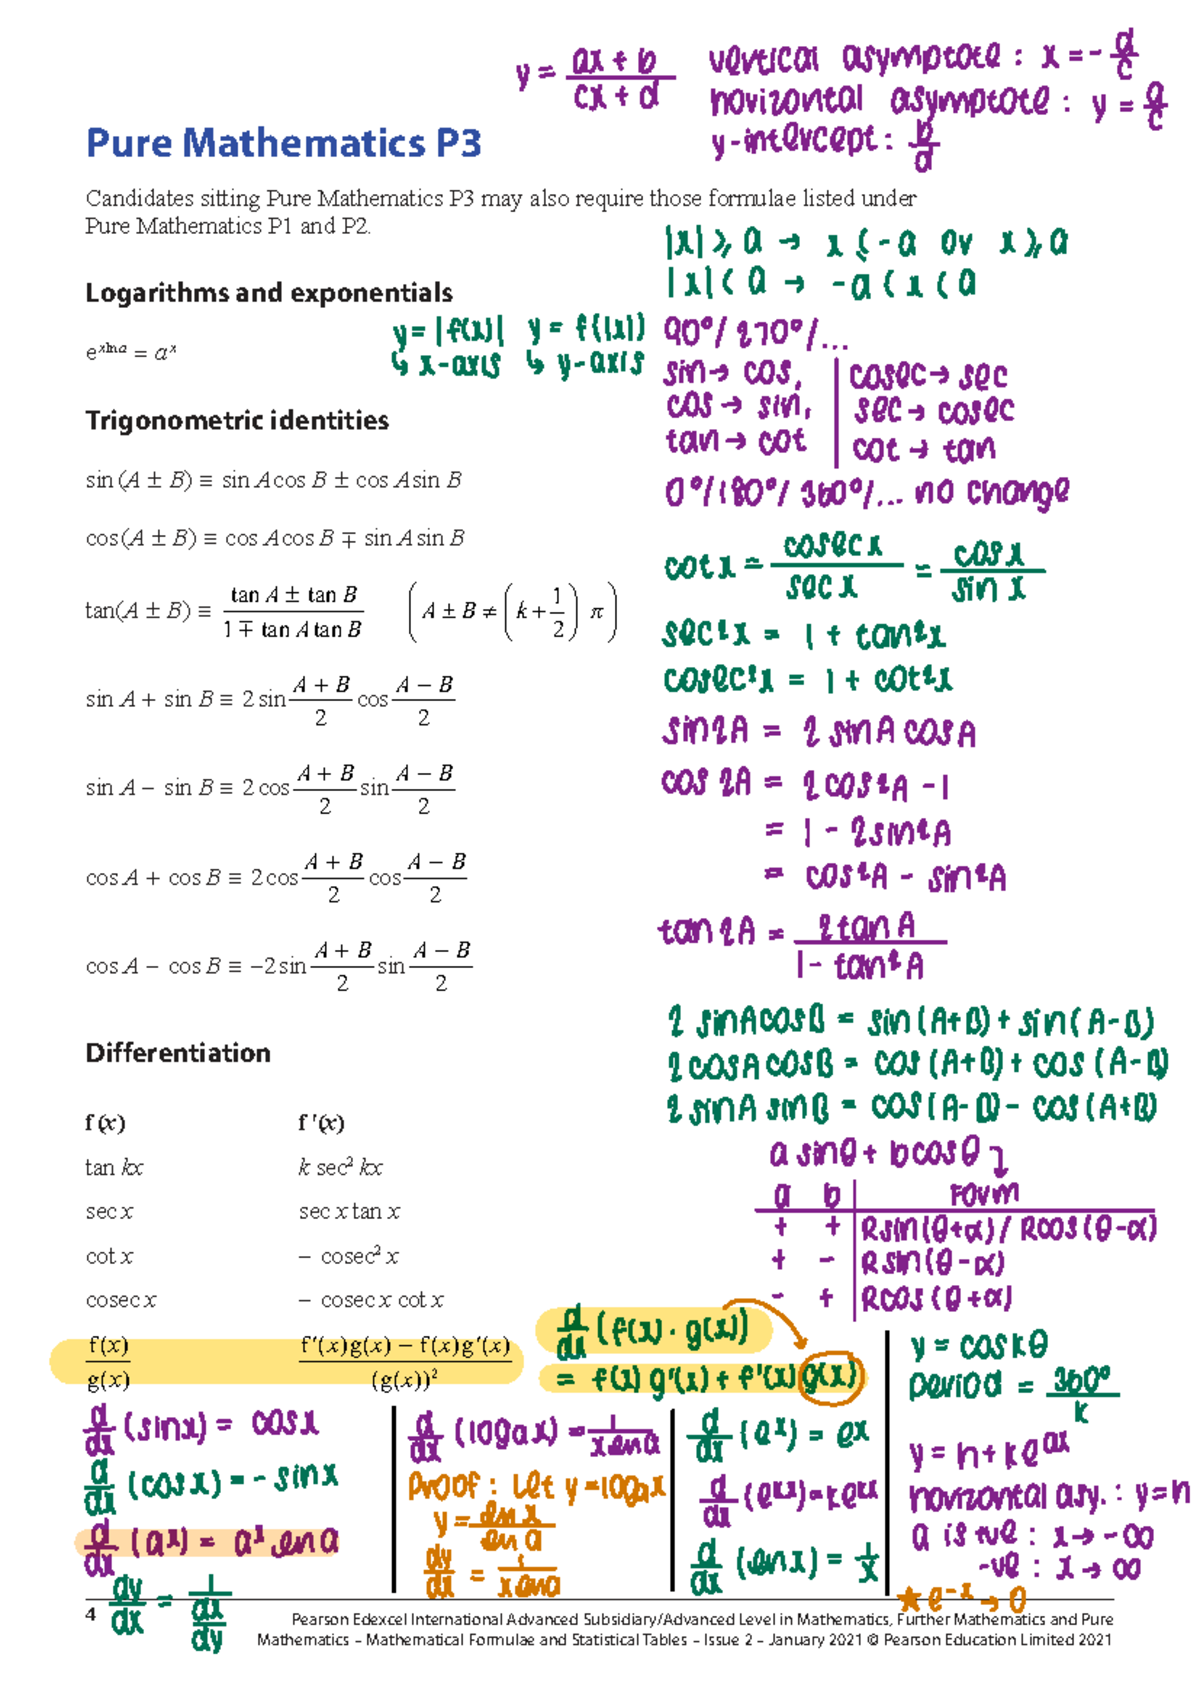 y = (ax + b)/(cx + d)
vertical asymptote : x = - d/c
horizontal asymptote : y = a/c
y-intercept : b/d
Pure Mathematics P3
Candidates sitting Pure Mathematics P3 may also require those formulae listed under
Pure Mathematics P1 and P2.
|x| ⩾ a → x ⩽ -a or x ⩾ a
|x| < a → -a < x < a
Logarithms and exponentials
e^(x ln a) = a^x
y = |f(x)| y = f(|x|)
↳ x-axis ↳ y-axis
90°/ 270°/...
sin → cos, cosec → sec
cos → sin, sec → cosec
tan → cot cot → tan
0°/180°/ 360°/... no change
Trigonometric identities
sin (A ± B) ≡ sin A cos B ± cos A sin B
cos (A ± B) ≡ cos A cos B ∓ sin A sin B
tan(A ± B) ≡ (tan A ± tan B)/(1 ∓ tan A tan B) (A ± B ≠ (k + 1/2) π)
sin A + sin B ≡ 2 sin (A + B)/2 cos (A − B)/2
sin A − sin B ≡ 2 cos (A + B)/2 sin (A − B)/2
cos A + cos B ≡ 2 cos (A + B)/2 cos (A − B)/2
cos A − cos B ≡ −2 sin (A + B)/2 sin (A − B)/2
cot x = cosec x/sec x = cos x/sin x
sec²x = 1 + tan²x
cosec²x = 1 + cot²x
sin 2A = 2 sin A cos A
cos 2A = 2 cos²A - 1
= 1 - 2 sin²A
= cos²A - sin²A
tan 2A = 2 tan A/(1 - tan²A)
2 sinA cosB = sin (A+B) + sin (A-B)
2 cosA cosB = cos (A+B) + cos (A-B)
2 sinA sinB = cos (A-B) - cos (A+B)
a sinθ + b cosθ
a b Form
+ + Rsin(θ+α) / Rcos(θ-α)
+ - Rsin(θ-α)
- + Rcos(θ+α)
Differentiation
f(x) f ′(x)
tan kx k sec² kx
sec x sec x tan x
cot x − cosec² x
cosec x − cosec x cot x
f(x)/g(x) (f′(x)g(x) − f(x)g′(x))/(g(x))²
d/dx (f(x) · g(x))
= f(x) g'(x) + f'(x) g(x)
d/dx (sinx) = cosx
d/dx (cosx) = - sinx
d/dx (a^x) = a^x ln a
dy/dx = 1/(dx/dy)
d/dx (logₐx) = 1/(x ln a)
Proof : Let y = logₐx
y = ln x/ln a
dy/dx = 1/(x ln a)
d/dx (e^x) = e^x
d/dx (e^kx) = ke^kx
d/dx (ln x) = 1/x
y = cos kθ
period = 360°/k
y = h + ke^ax
horizontal asy. : y = h
a is +ve : x → -∞
-ve : x → ∞
★ e^-x → 0
4
Pearson Edexcel International Advanced Subsidiary/Advanced Level in Mathematics, Further Mathematics and Pure
Mathematics – Mathematical Formulae and Statistical Tables – Issue 2 – January 2021 © Pearson Education Limited 2021